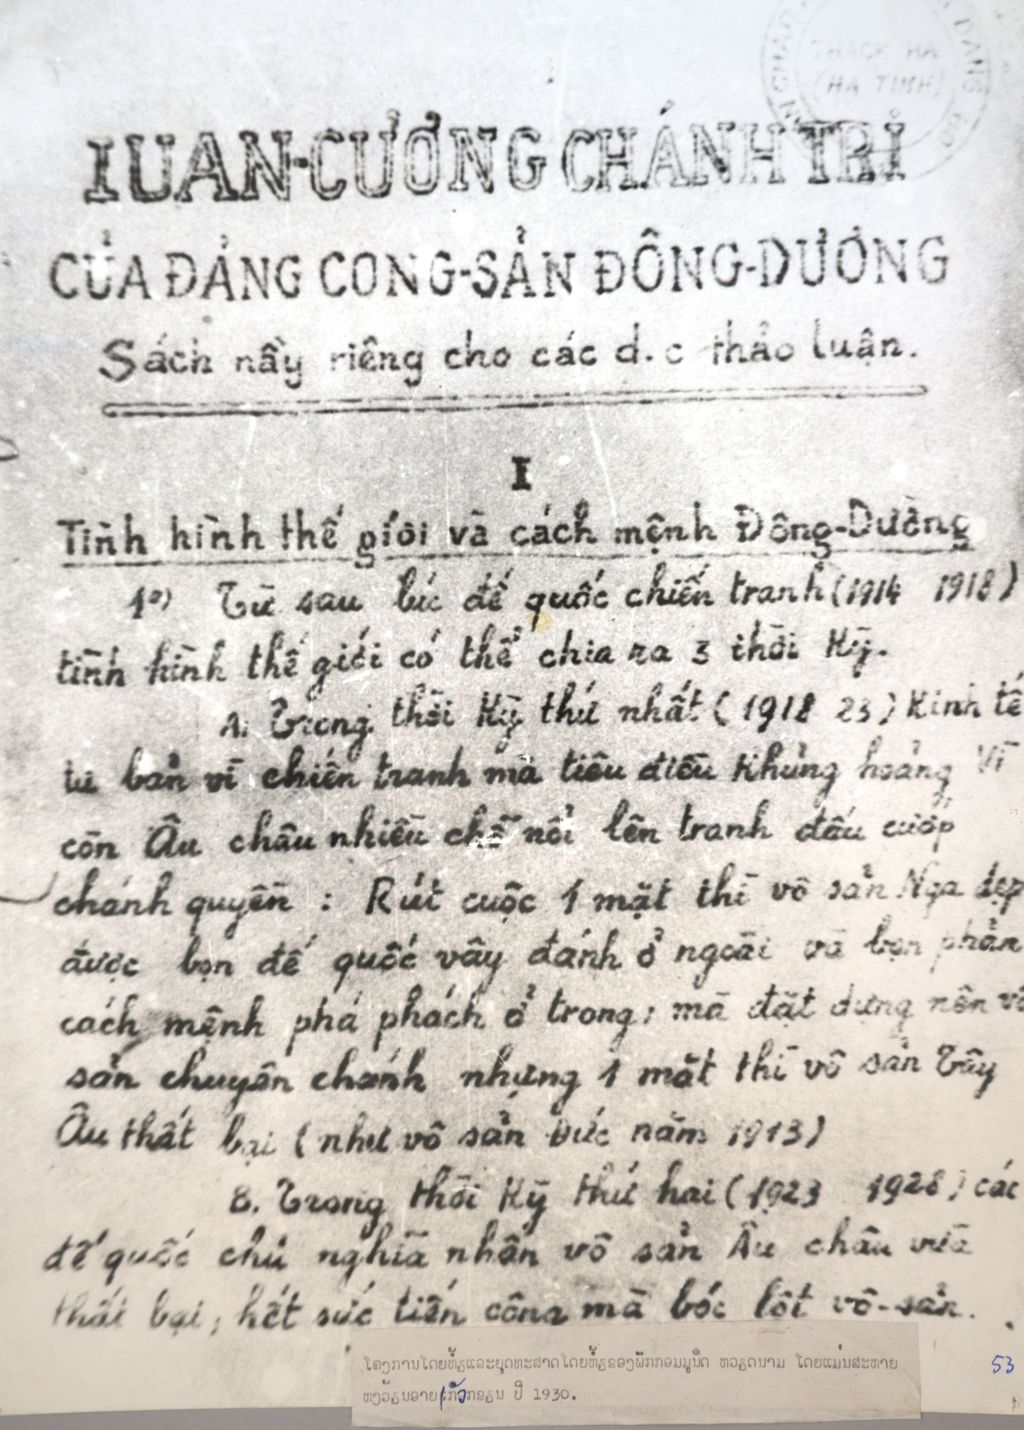 THẠCH HÀ
(HÀ TĨNH)
IUAN-CƯƠNG CHÁNH TRỊ
CỦA ĐẢNG CONG-SẢN ĐÔNG-DƯƠNG
Sách nầy riêng cho các đ.c thảo luận.
I
Tình hình thế giới và cách mệnh Đông-Dương
1º) Từ sau lúc đế quốc chiến tranh (1914 1918)
tình hình thế giới có thể chia ra 3 thời kỳ.
A. Trong thời kỳ thứ nhất (1918 23) Kinh tế
tư bản vì chiến tranh mà tiêu điều khủng hoảng Vì
còn Âu châu nhiều chỗ nổi lên tranh đấu cướp
chánh quyền : Rút cuộc 1 mặt thì vô sản Nga dẹp
được bọn đế quốc vây đánh ở ngoài và bọn phản
cách mệnh phá phách ở trong; mà đặt dựng nên vô
sản chuyên chánh nhưng 1 mặt thì vô sản Tây
Âu thất bại (như vô sản Đức năm 1913)
B. Trong thời kỳ thứ hai (1923 1928) các
đế quốc chủ nghĩa nhân vô sản Âu châu vừa
thất bại, hết sức tiến công mà bóc lột vô-sản.
ໂຄງການໂດຍຫຍໍ້ແລະຍຸດທະສາດໂດຍຫຍໍ້ຂອງພັກກອມມູນິດ ຫວຽດນາມ ໂດຍແມ່ນສະຫາຍ
ປີ 1930.
53